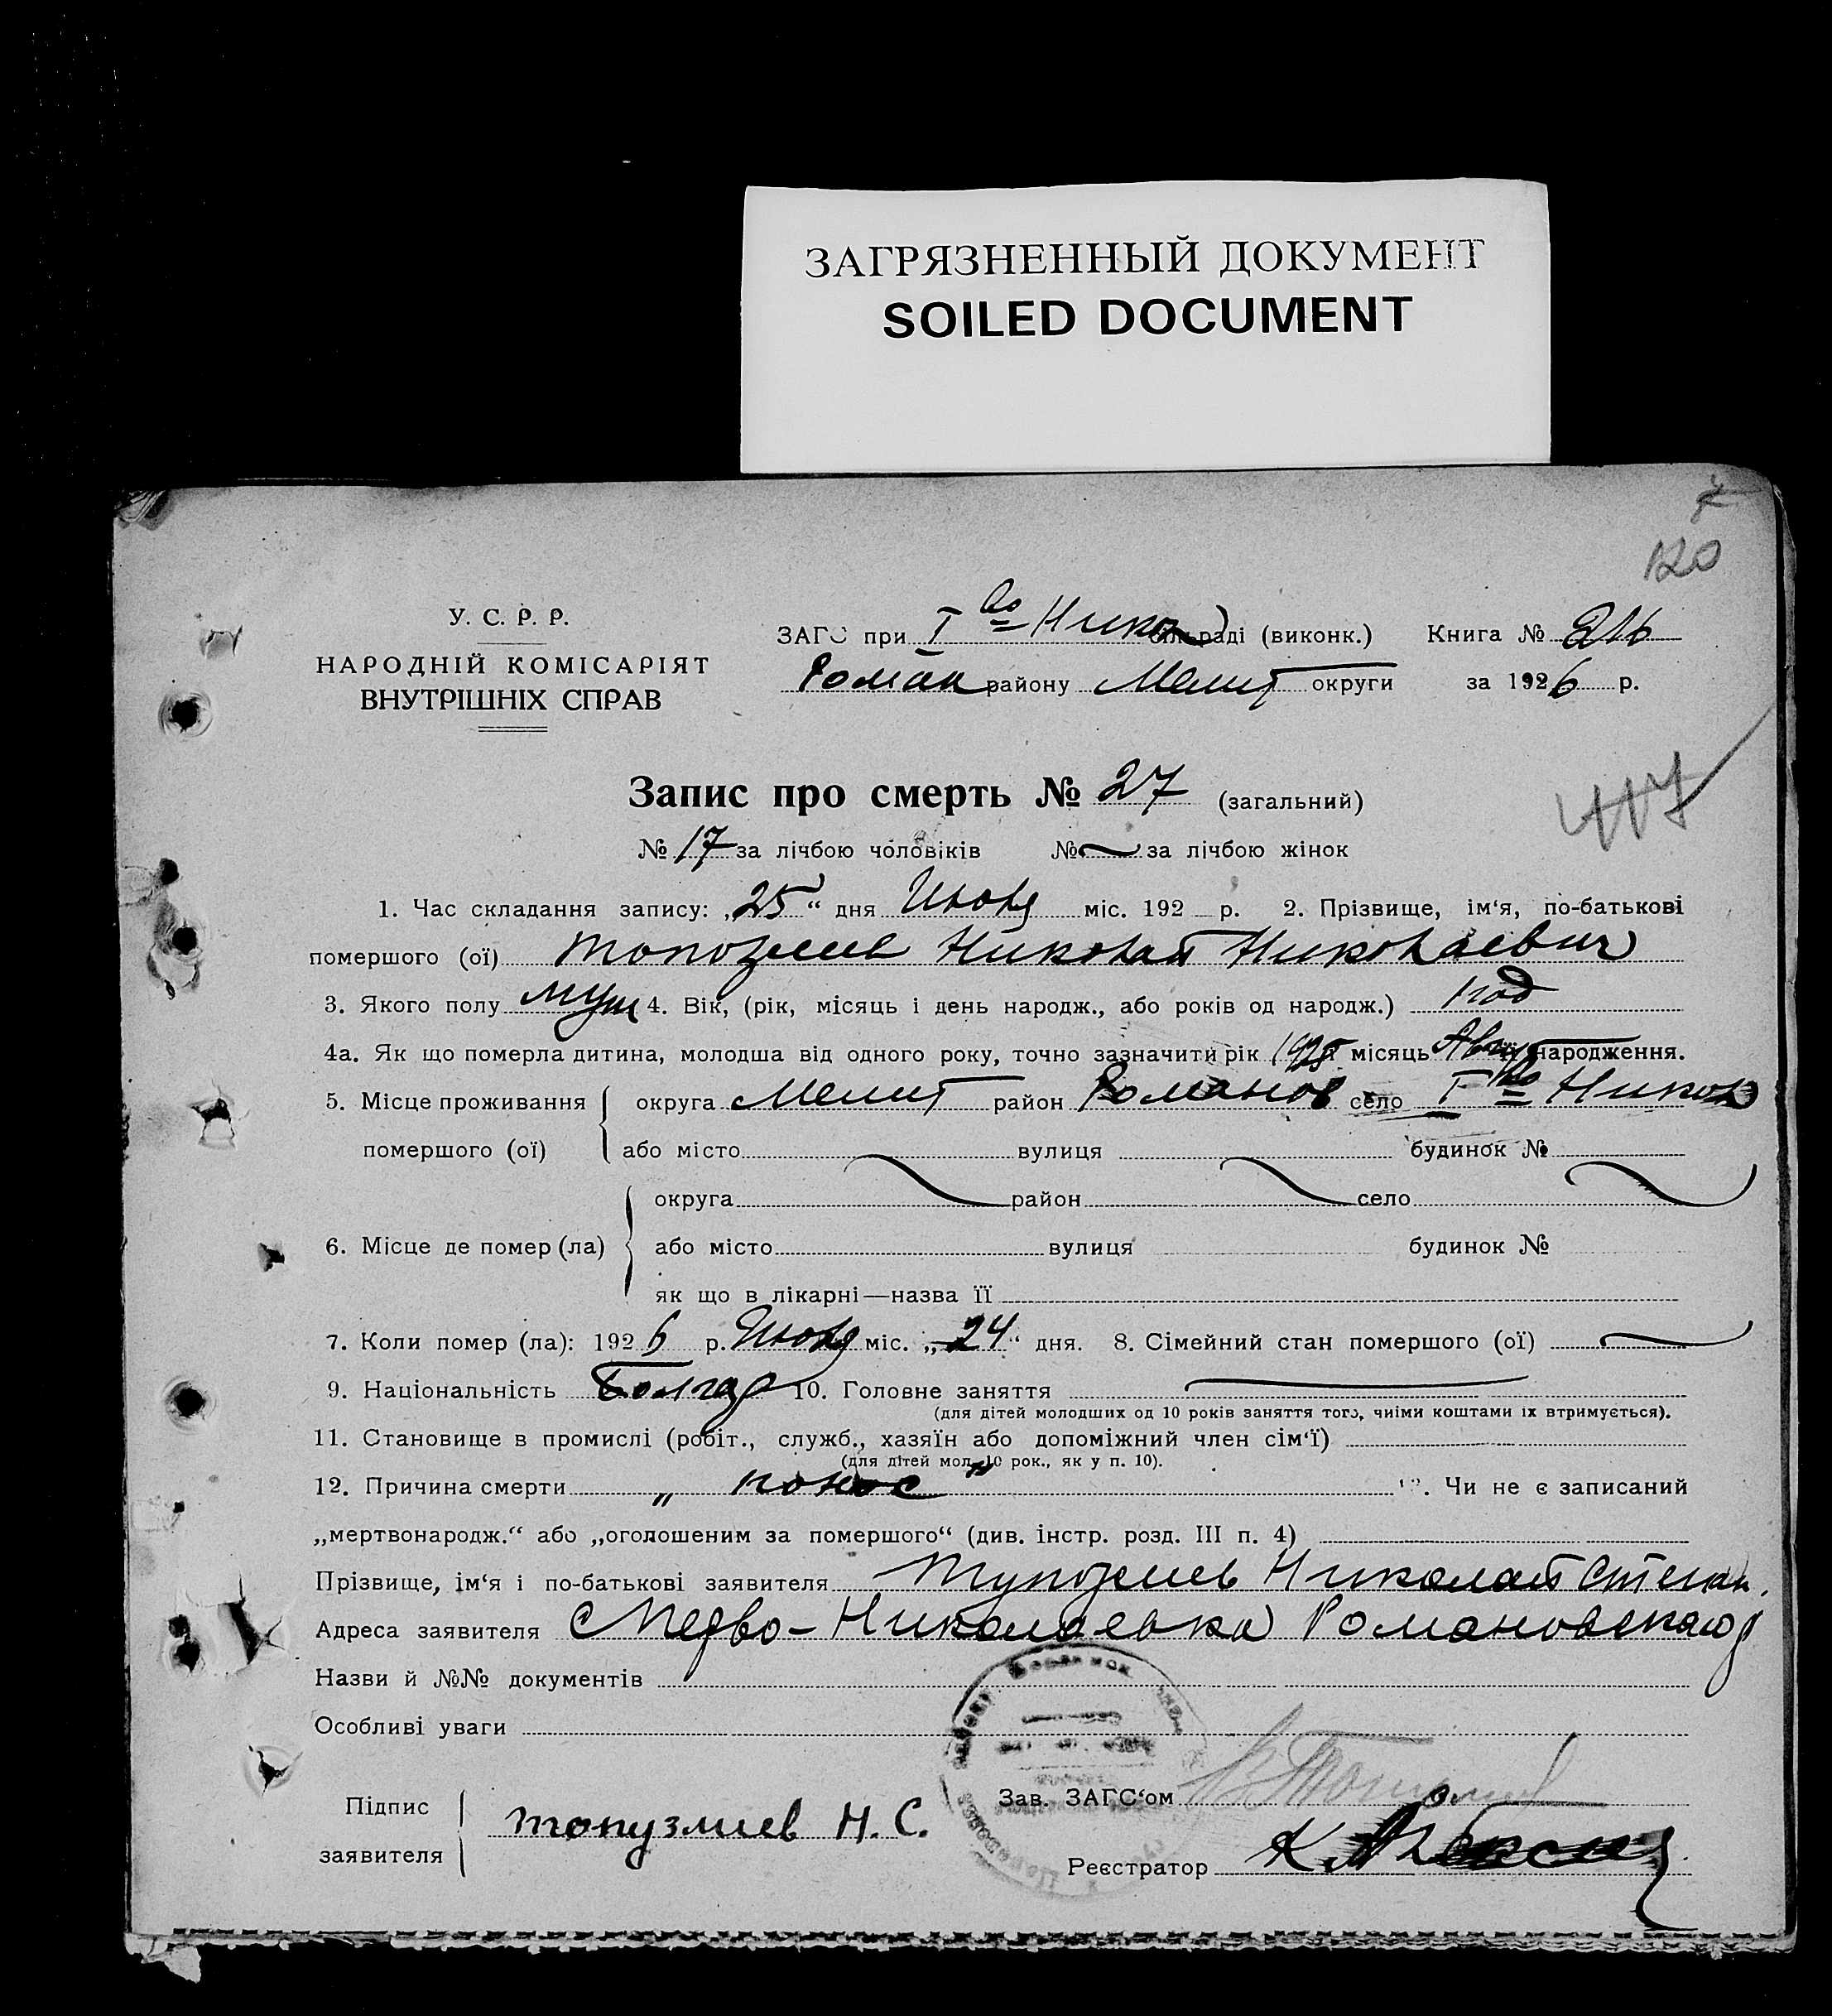 ЗАГРЯЗНЕННЫЙ ДОКУМЕНТ
SOILED DOCUMENT
120
У. С. Р. Р.
НАРОДНІЙ КОМІСАРІЯТ
ВНУТРІШНІХ СПРАВ
ЗАГС при І во Никол раді (виконк.) Книга №
Роман району Мелит округи за 1926 р.
Запис про смерть № 27 (загальний)
417
№ 17 за лічбою чоловіків № за лічбою жінок
1. Час складання запису: „25“ дня Июля міс. 192 р. 2. Прізвище, ім‘я, по-батькові
помершого (ої) Топозлиев Николай Николаевич
3. Якого полу муж 4. Вік, (рік, місяць і день народж., або років од народж.) 1 год
4а. Як що померла дитина, молодша від одного року, точно зазначити рік 1925 місяць Авгус народження.
5. Місце проживання округа Мелит район Романов село І во Никол
помершого (ої) або місто вулиця будинок №
округа район село
6. Місце де помер (ла) або місто вулиця будинок №
як що в лікарні—назва її
7. Коли помер (ла): 1926 р. Июля міс. „24“ дня. 8. Сімейний стан помершого (ої)
9. Національність Болгар 10. Головне заняття
(для дітей молодших од 10 років заняття того, чиїми коштами їх втримується).
11. Становище в промислі (робіт., служб., хазяїн або допоміжний член сім‘ї)
(для дітей мол. 10 рок., як у п. 10).
12. Причина смерти „ понос " . Чи не є записаний
„мертвонародж.“ або „оголошеним за помершого“ (див. інстр. розд. III п. 4)
Прізвище, ім‘я і по-батькові заявителя Тупозлиев Николай Степан.
Адреса заявителя Николаевка Романовского
Назви й №№ документів
Особливі уваги
Зав. ЗАГС‘ом
Підпис
заявителя
Топузлиев Н. С.
Реєстратор